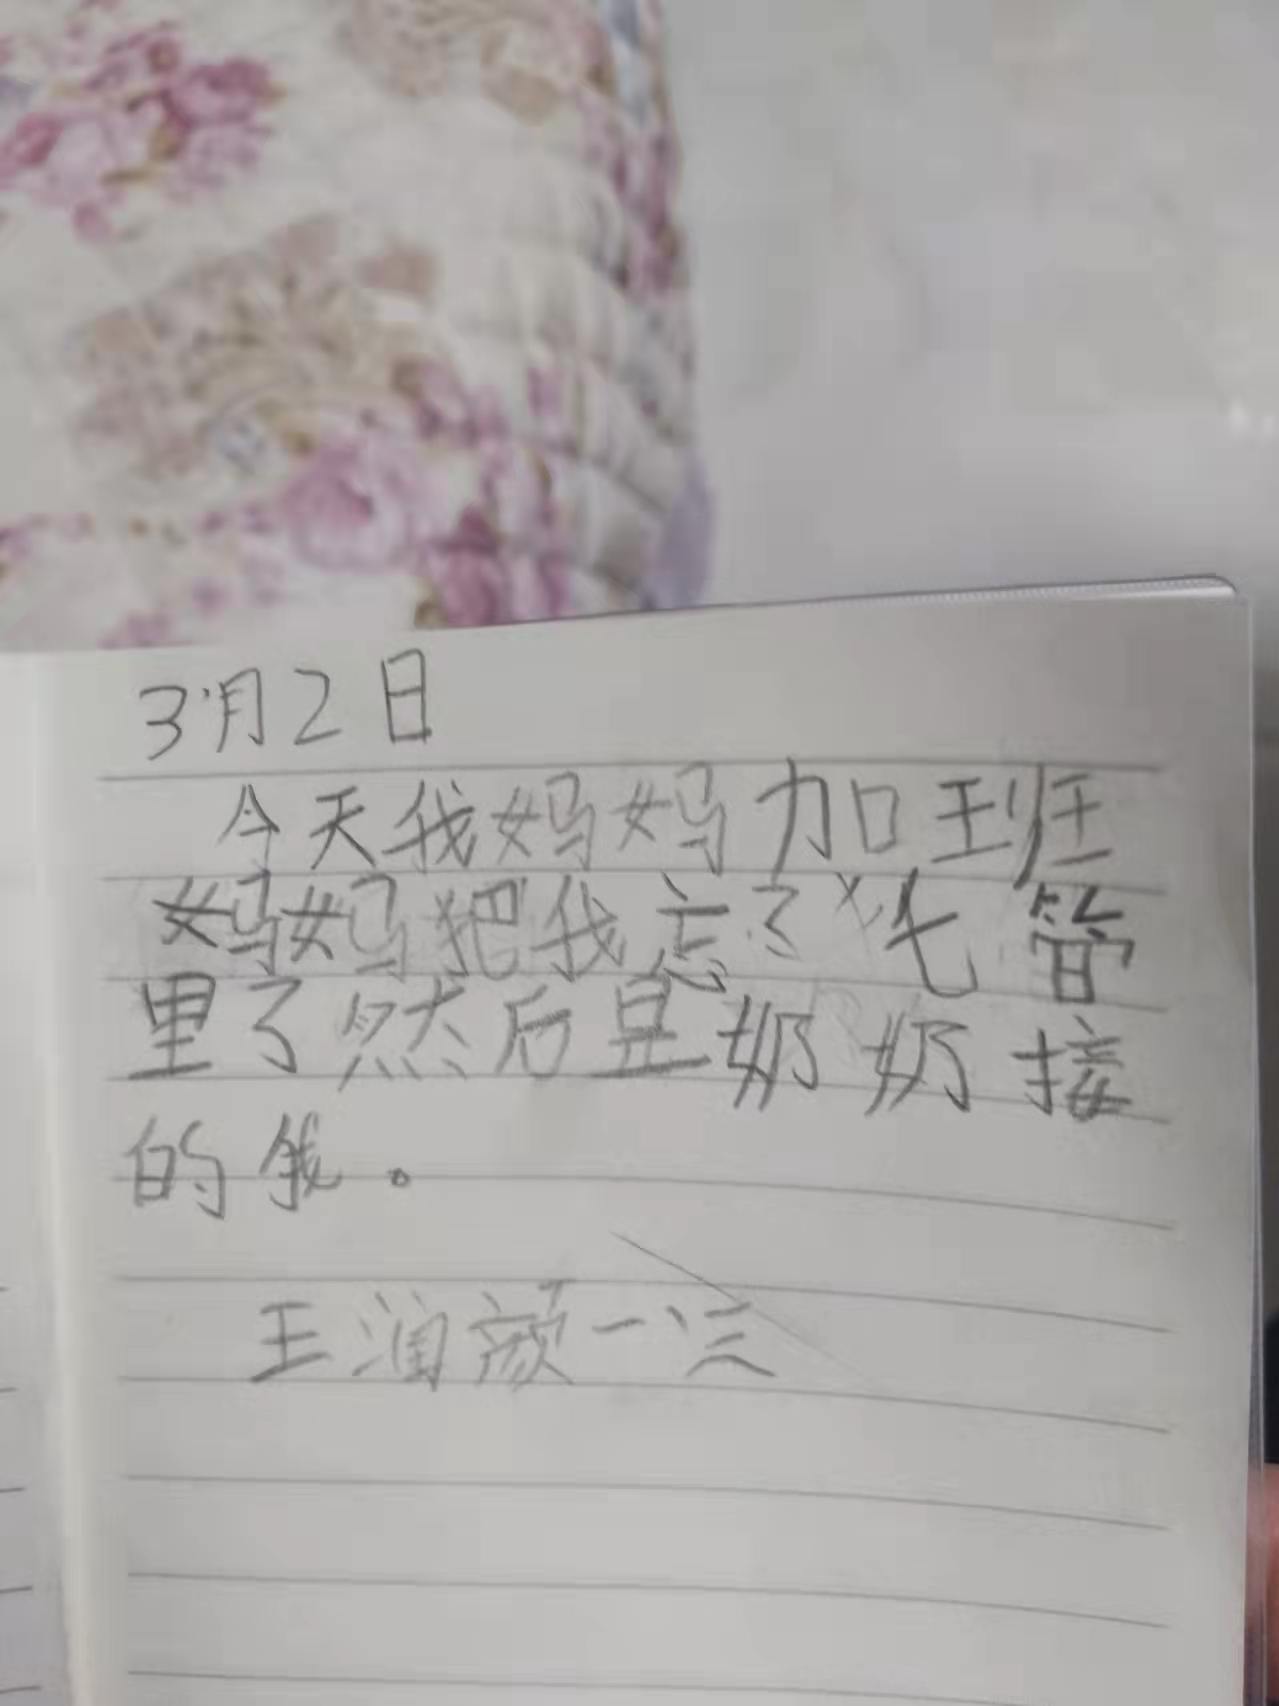 3月2日
今天我妈妈加班
妈妈把我忘了 七管
里了然后是奶奶接
的我。
王润颜一三